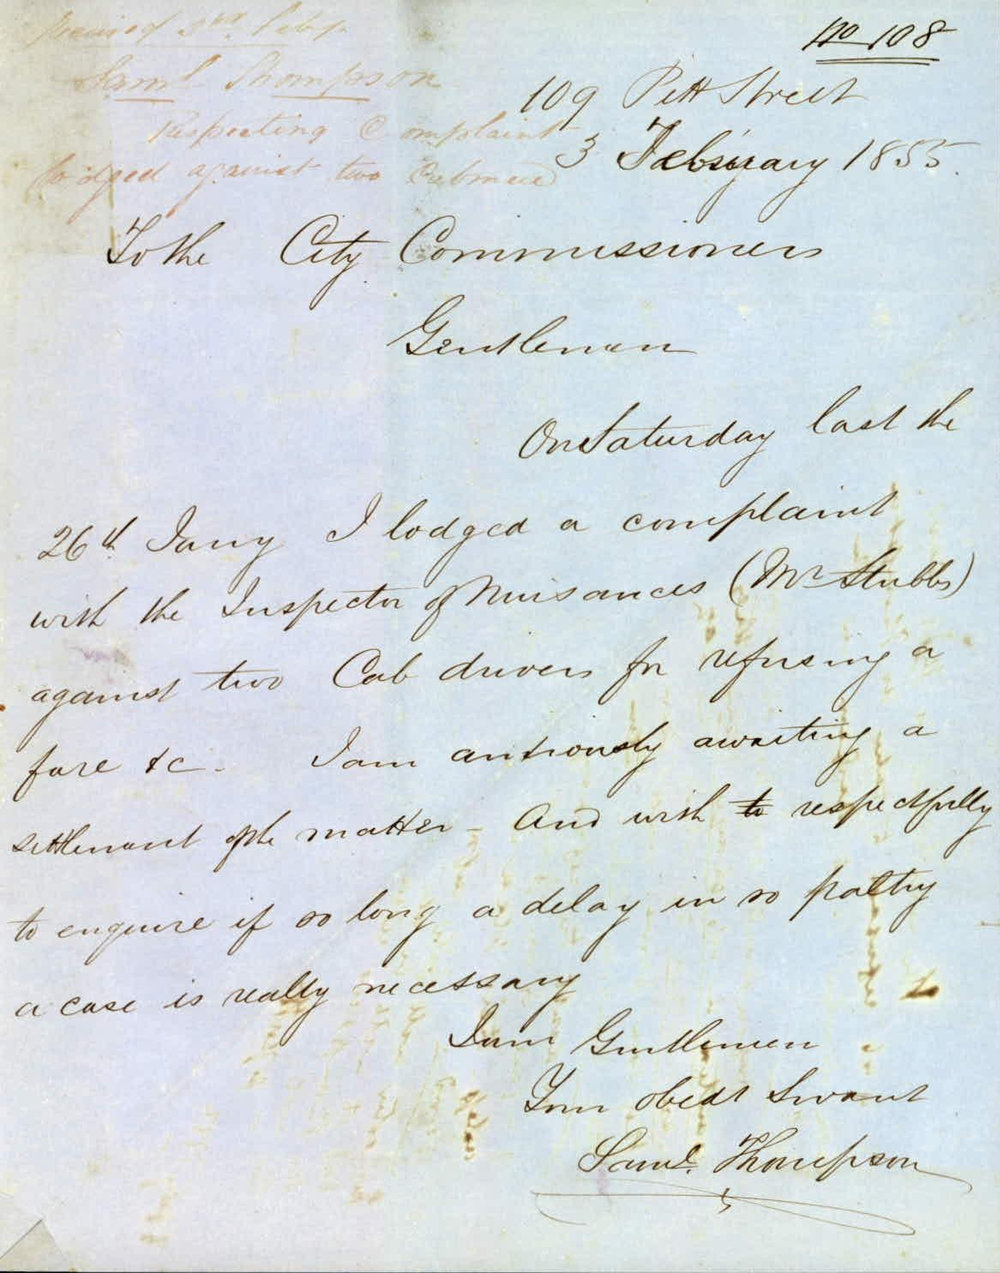 No 108
Received 3rd Feby
Saml Thompson
Respecting Complaint
lodged against two Cabmen
109 Pitt Street
3 February 1855.
To the City Commissioners
Gentlemen
On Saturday last the
26th Jany I lodged a complaint
with the Inspector of Nuisances (Mr Stubbs)
against two Cab drivers for refusing a
fare &c. I am anxiously awaiting a
settlement of the matter - And wish to respectfully
to enquire if so long a delay in so paltry
a case is really necessary
I am Gentlemen
Your obedt Servant
Saml. Thompson